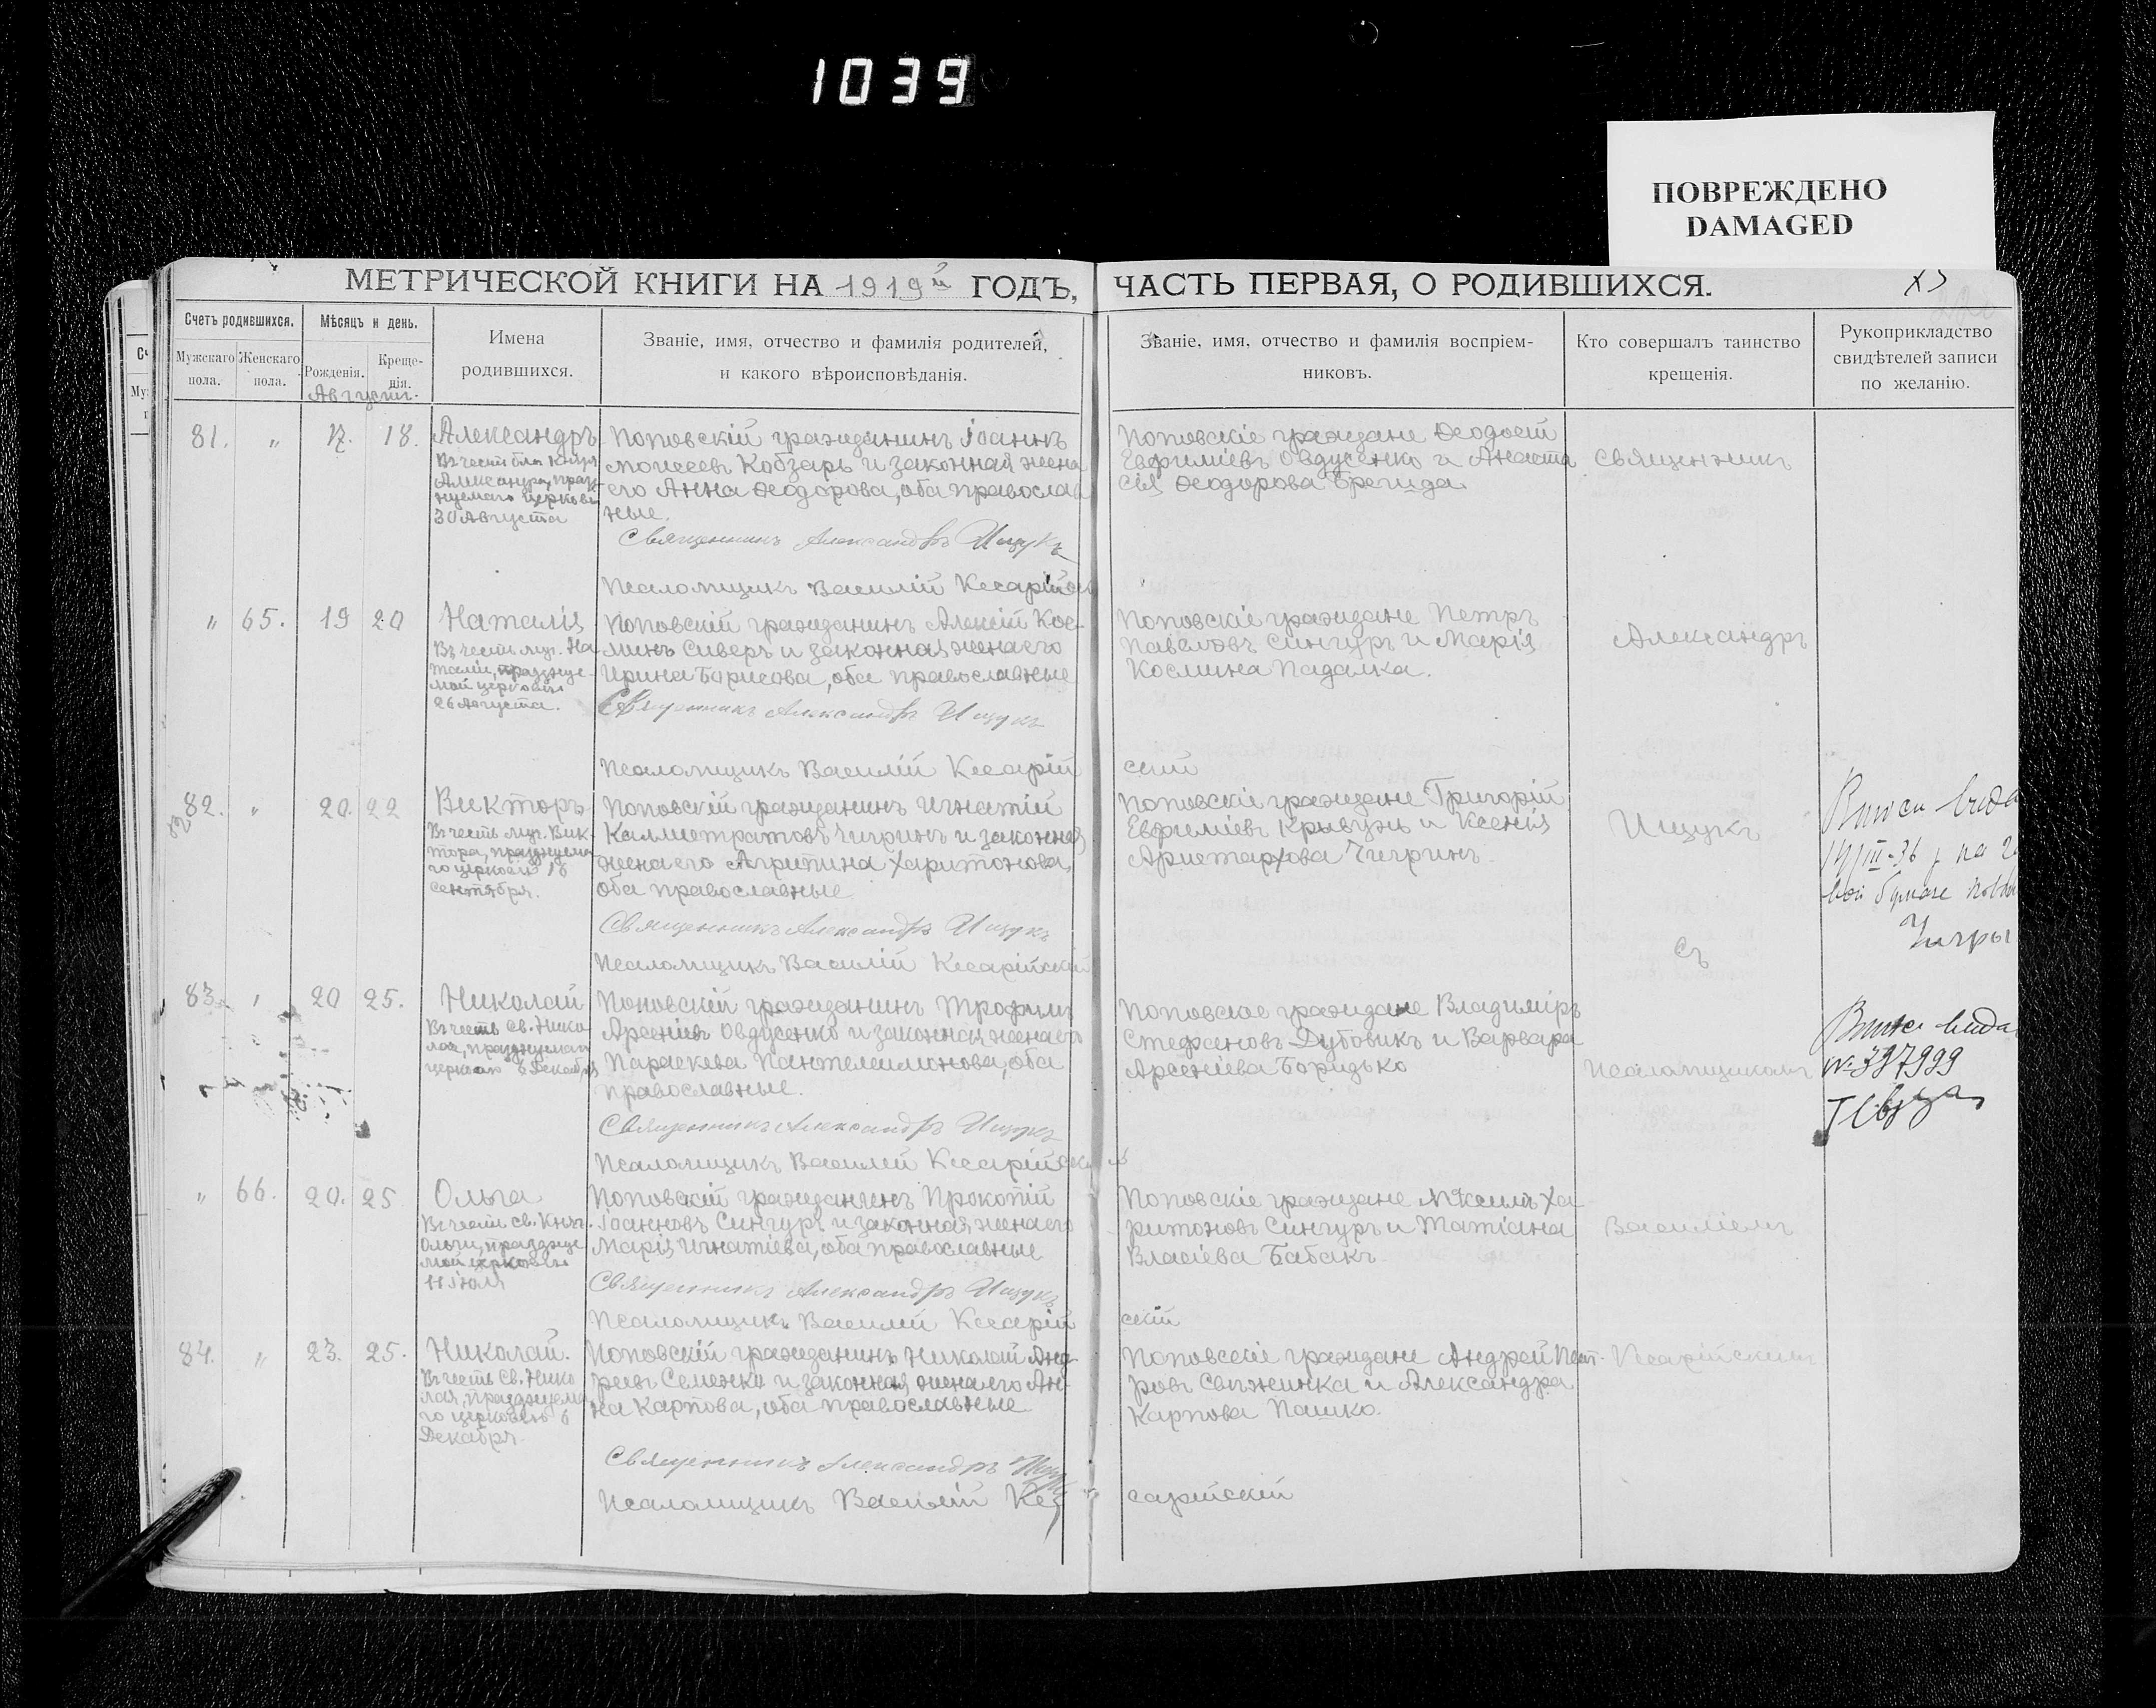 1039
ПОВРЕЖДЕНО
DAMAGED
МЕТРИЧЕСКОЙ КНИГИ НА 1919й ГОДЪ,
ЧАСТЬ ПЕРВАЯ, О РОДИВШИХСЯ.
Счетъ родившихся.
Мужскаго пола.
Женскаго пола.
Мѣсяцъ и день.
Рожденія.
Креще-
нія.
Августъ.
Имена
родившихся.
Званіе, имя, отчество и фамилія родителей,
и какого вѣроисповѣданія.
Званіе, имя, отчество и фамилія воспріем-
никовъ.
Кто совершалъ таинство
крещенія.
Рукоприкладство
свидѣтелей записи
по желанію.
81. " 17. 18.
Александръ
Въ честь бла. Князя
Александра, празд-
нуемаго церковью
30 Августа
Поповскій гражданинъ Іоаннъ
Моисеевъ Кобзарь и законная жена
его Анна Феодорова, оба православ
ные.
Священникъ Александръ Ищукъ
Псаломщикъ Василій Кесарійск
Поповскіе граждане Феодосій
Евфиміевъ Овдусенко и Анаста
сія Феодорова Брегида.
Священникъ
" 65. 19 20
Наталія
Въ честь муч. На
таліи, празднуе-
мой церковью
26 Августа.
Поповскій гражданинъ Алексій Кос-
минъ Сиверъ и законная жена его
Ирина Борисова, оба православные
Священникъ Александръ Ищукъ
Псаломщикъ Василій Кесарій
ский
Поповскіе граждане Петръ
Павловъ Сингуръ и Марія
Космина Падалка.
Александръ
82. " 20. 22
Викторъ
Въ честь муч. Вик-
тора, празднуема
го церковью 18
Сентября.
Поповскій гражданинъ Игнатій
Каллистратовъ Чигринъ и законная
жена его Агрипина Харитонова,
оба православные
Священникъ Александръ Ищукъ
Псаломщикъ Василій Кесарійскій
Поповскіе граждане Григорій
Евфиміевъ Крывузь и Ксенія
Аристархова Чигринъ.
Ищукъ
съ
83. " 20 25.
Николай
Въ честь Св. Нико
лая, празднуемаго
церковью 6 Декабря
Поповскій гражданинъ Трофимъ
Арсеніевъ Овдусенко и законная жена его
Параскева Пантелеимонова, оба
православные.
Священникъ Александръ Ищукъ
Псаломщикъ Василій Кесарійскій
Поповскіе граждане Владиміръ
Стефановъ Дубовикъ и Варвара
Арсеніева Боридько
Псаломщикомъ
№ 397999
" 66. 20. 25
Ольга
Въ честь Св. Княг.
Ольги, празднуе
мой церковью
11 Іюля
Поповскій гражданинъ Прокопій
Іоанновъ Сингуръ и законная жена его
Марія Игнатіева, оба православные
Священникъ Александръ Ищукъ
Псаломщикъ Василій Кесарій
скій
Поповскіе граждане Михаилъ Ха
ритоновъ Сингуръ и Татіана
Власіева Бабакъ
Василіемъ
84. " 23. 25.
Николай.
Въ честь Св. Нико
лая, празднуема
го церковью 6
Декабря.
Поповскій гражданинъ Николай Анд-
реевъ Семенко и законная жена его Ан-
на Карпова, оба православные
Священникъ Александръ Ищукъ
Псаломщикъ Василій Ке
сарійскій
Поповскіе граждане Андрей Пет-
ровъ Свѣжинка и Александра
Карпова Пашко.
Кесарійскимъ